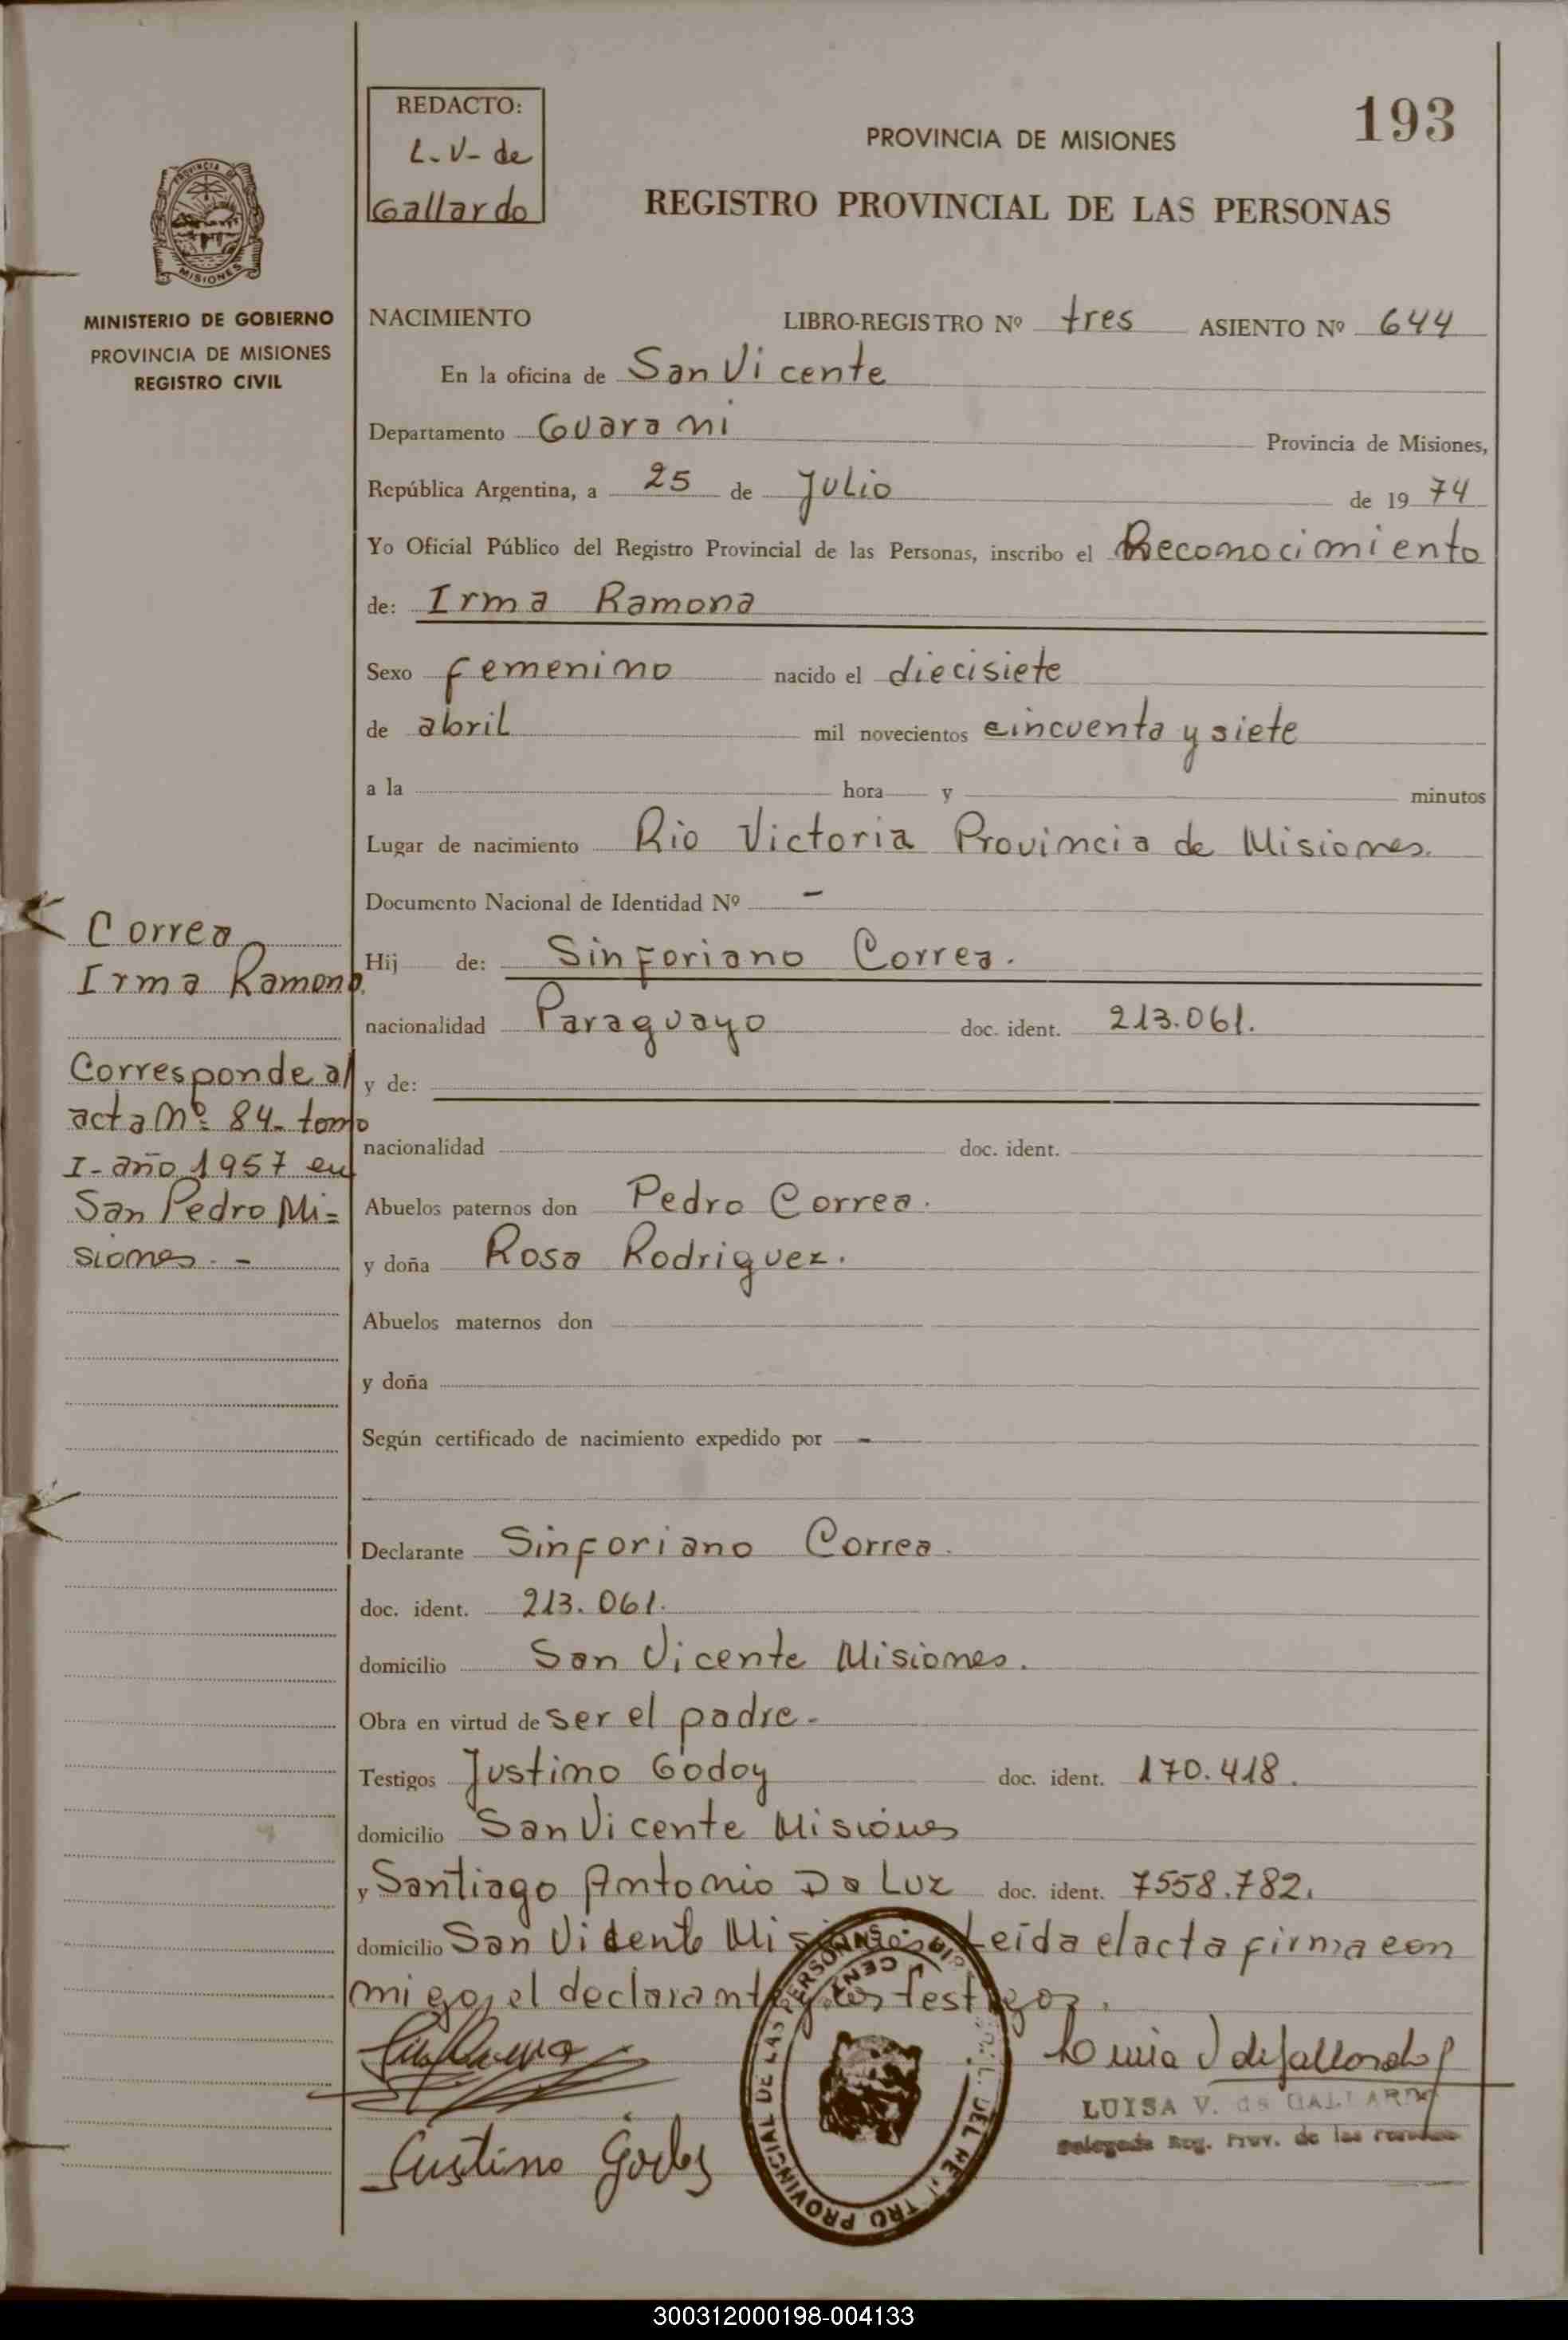 REDACTO:
L-V- de
Gallardo
193
PROVINCIA DE MISIONES
REGISTRO PROVINCIAL DE LAS PERSONAS
MISIONES
MINISTERIO DE GOBIERNO
PROVINCIA DE MISIONES
REGISTRO CIVIL
NACIMIENTO LIBRO-REGISTRO Nº tres ASIENTO Nº 644
En la oficina de San Vicente
Departamento Guarani Provincia de Misiones,
República Argentina, a 25 de Julio de 1974
Yo Oficial Público del Registro Provincial de las Personas, inscribo el Reconocimiento
de: Irma Ramona
Sexo femenino nacido el diecisiete
de abril mil novecientos cincuenta y siete
a la hora y minutos
Lugar de nacimiento Rio Victoria Provincia de Misiones.
Documento Nacional de Identidad Nº -
Hij de: Sinforiano Correa.
nacionalidad Paraguayo doc. ident. 213.061.
y de:
nacionalidad doc. ident.
Abuelos paternos don Pedro Correa.
y doña Rosa Rodriguez.
Abuelos maternos don
y doña
Según certificado de nacimiento expedido por -
Correa
Irma Ramona
Corresponde al
acta Nº 84- tomo
I- año 1957 en
San Pedro Mi=
siones. -
Declarante Sinforiano Correa.
doc. ident. 213.061.
domicilio San Vicente Misiones.
Obra en virtud de ser el padre-
Testigos Justino Godoy doc. ident. 170.418.
domicilio San Vicente Misiones
y Santiago Antonio Da Luz doc. ident. 7558.782.
domicilio San Vicente Misiones Leída el acta firma con
migo, el declarante y los testigos.
Justino Godoy
LUISA V. de GALLARDO
Delegada Reg. Prov. de las Personas
300312000198-004133